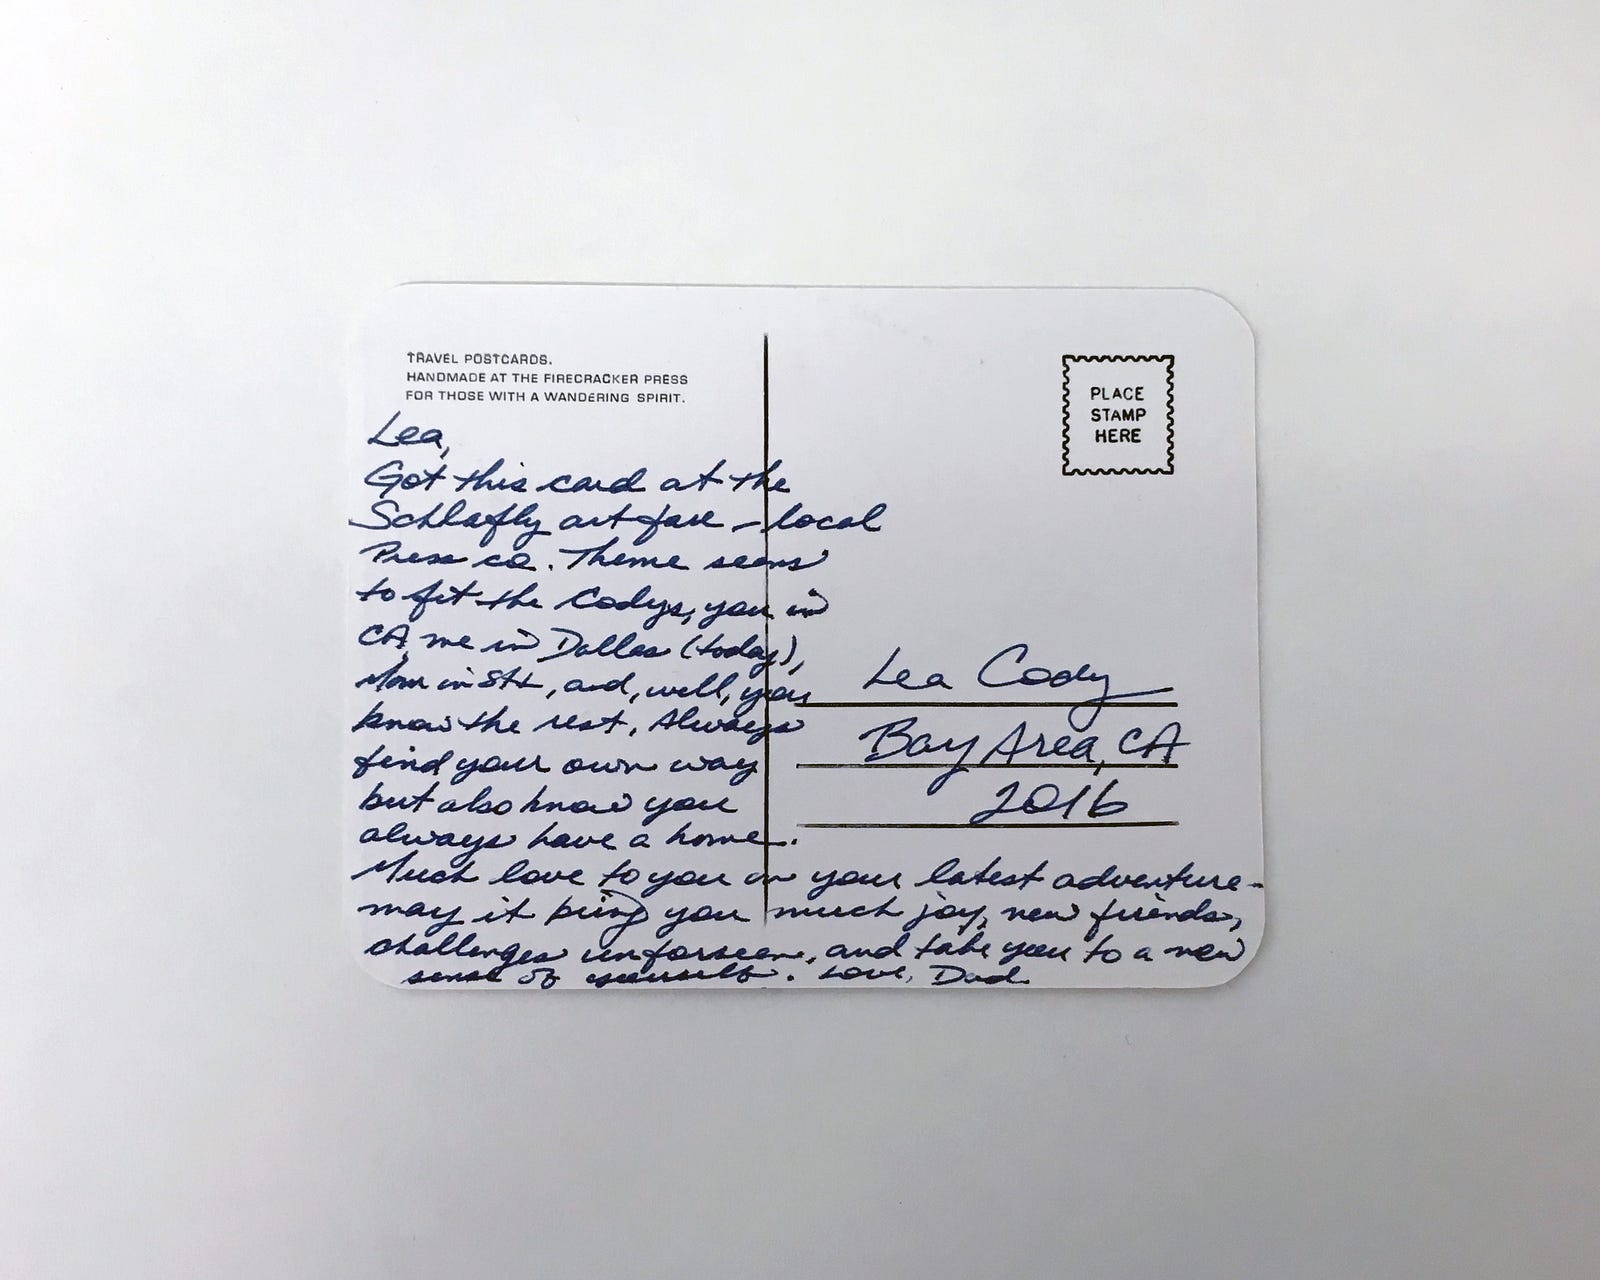 TRAVEL POSTCARDS.
HANDMADE AT THE FIRECRACKER PRESS
FOR THOSE WITH A WANDERING SPIRIT.
Lea,
Got this card at the
Schlafly art fare – local
Press co. Theme seems
to fit the Codys, you in
CA, me in Dallas (today),
Mom in StL, and, well, you
know the rest. Always
find your own way
but also know you
always have a home.
Much love to you on your latest adventure –
may it bring you much joy, new friends,
challenges unforseen, and take you to a new
sense of yourself. Love, Dad
PLACE
STAMP
HERE
Lea Cody
Bay Area, CA
2016